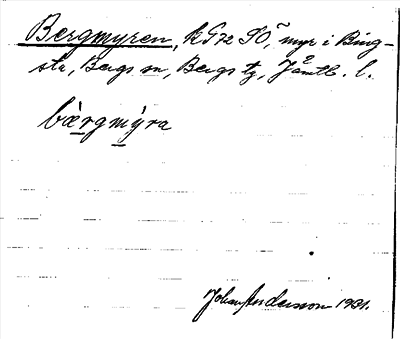 Bergmyren, k G72 SO, myr i Bing-
sta, Bergs sn, Bergs tg, Jämtl. l.
bærgmýra
Johan Anderson 1931.